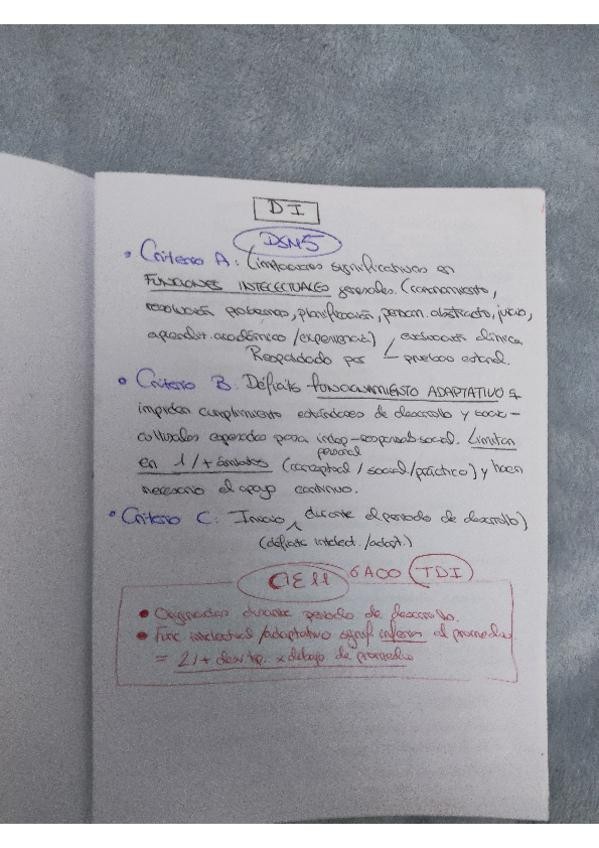 DI
DSM5
• Criterio A: Limitaciones significativas en
FUNCIONES INTELECTUALES generales. (razonamiento,
resolución problemas, planificación, pensam. abstracto, juicio,
aprendiz. académico / experiencia)
evaluación clínica
Respaldado por
pruebas estand.
• Criterio B: Déficits FUNCIONAMIENTO ADAPTATIVO q
impiden cumplimiento estándares de desarrollo y socio-
culturales esperados para indep-responsab social. Limitan
personal
en 1/+ ámbitos (conceptual / social/práctico) y hacen
necesario el apoyo continuo.
• Criterio C: Inicio durante el periodo de desarrollo)
(déficits intelect. /adapt.)
CIE 11 6A00 TDI
• Originados durante periodo de desarrollo.
• Func intelectual /adaptativo signif inferior al promedio
= 2/+ desv tip. x debajo de promedio